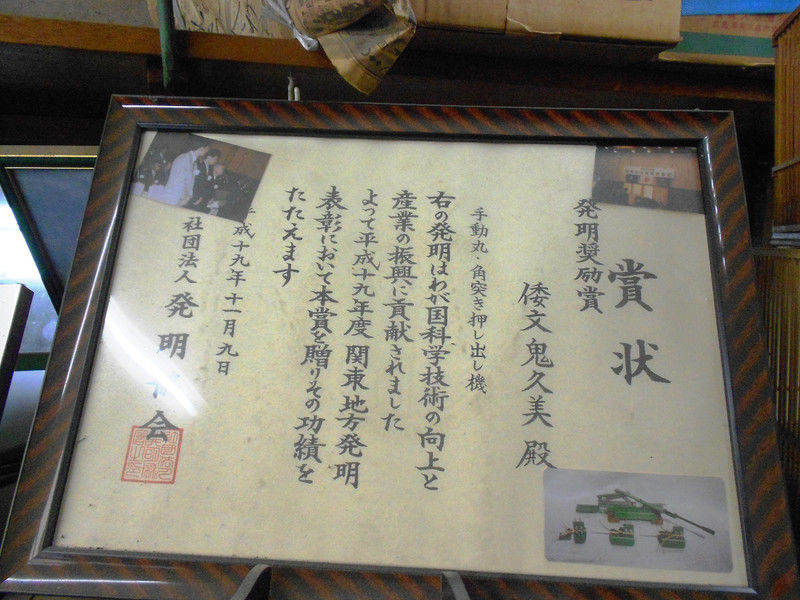 賞状
発明奨励賞
倭文鬼久美殿
手動丸・角突き押し出し機
右の発明はわが国科学技術の向上と
産業の振興に貢献されました
よって平成十九年度関東地方発明
表彰において本賞を贈りその功績を
たたえます
平成十九年十一月九日
社団法人発明 会